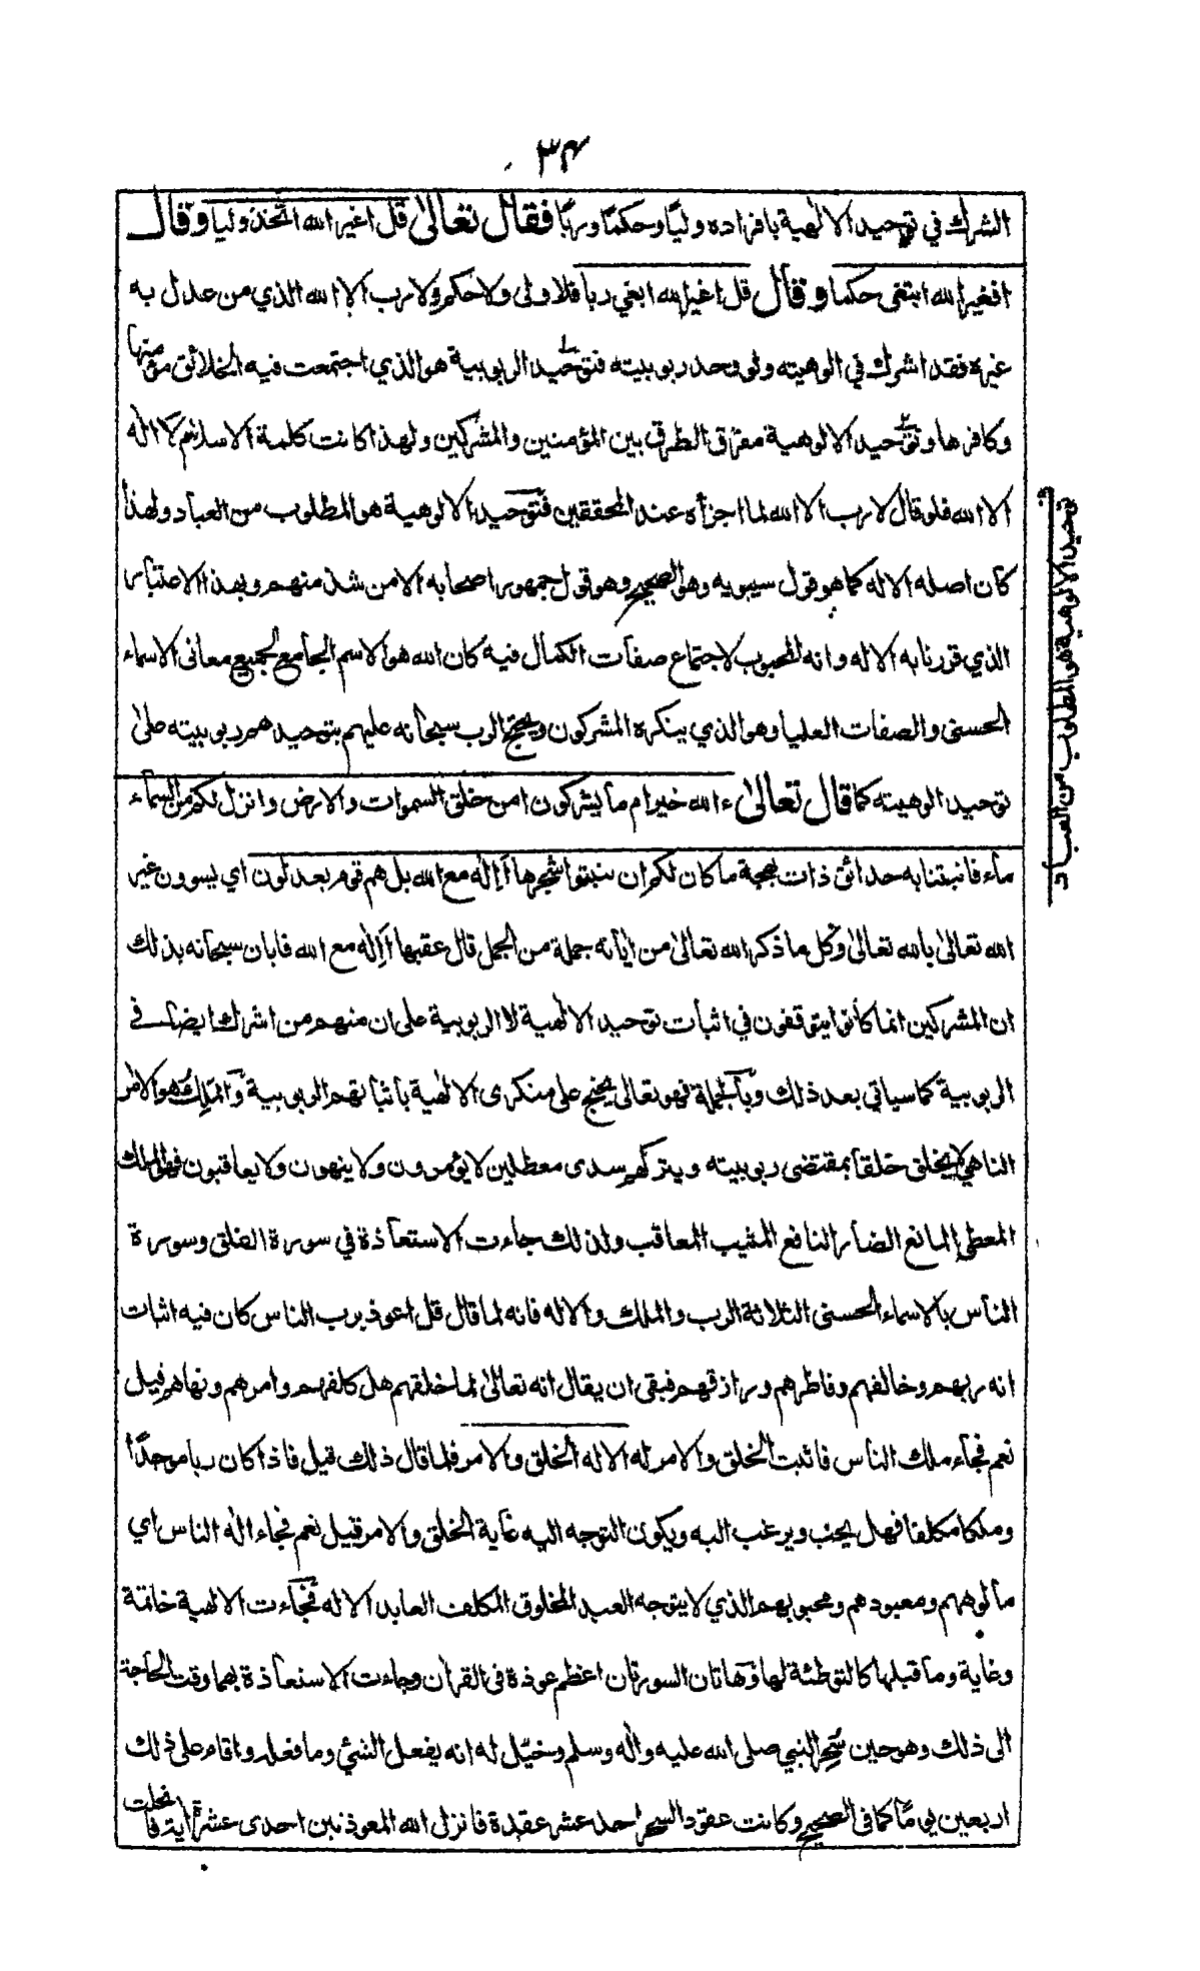 ٣٤
الشرك في توحيد الالٰهية بافراده وليًا وحكمًا وربًا فقال تعالىٰ قل اغير الله اتخذ وليا وقال
افغير الله ابتغى حكما وقال قل اغير الله ابغي ربا فلا ولى ولا حكم ولا رب الا الله الذي من عدل به
غيره فقد اشرك في الوهيته ولو وحد ربوبيته فتوحيد الربوبية هو الذي اجتمعت فيه الخلائق مؤمنها
وكافرها وتوحيد الالوهية مفرق الطرق بين المؤمنين والمشركين ولهذا كانت كلمة الاسلام لا اله
الا الله فلو قال لا رب الا الله لما اجزأه عند المحققين فتوحيد الالوهية هو المطلوب من العباد ولهذا
كان اصله الاله كما هو قول سيبويه وهو الصحيح وهو قول جمهور اصحابه الا من شذ منهم وبهذا الاعتبار
الذي قررنا به الاله وانه المحبوب لاجتماع صفات الكمال فيه كان الله هو الاسم الجامع لجميع معانى الاسماء
الحسنى والصفات العليا وهو الذي ينكره المشركون ويحتج الرب سبحانه عليهم بتوحيدهم ربوبيته علىٰ
توحيد الوهيته كما قال تعالىٰ ءالله خير ام ما يشركون امن خلق السموات والارض وانزل لكم من السماء
ماء فانبتنا به حدائق ذات بهجة ما كان لكم ان تنبتوا شجرها أإلٰه مع الله بل هم قوم يعدلون اي يسوون غير
الله تعالىٰ بالله تعالىٰ وكل ما ذكر الله تعالىٰ من اٰياته جملة من الجمل قال عقبها أإلٰه مع الله فابان سبحانه بذلك
ان المشركين انما كانوا يتوقفون في اثبات توحيد الالٰهية لا الربوبية على ان منهم من اشرك ايضا في
الربوبية كما سياتي بعد ذلك وبالجملة فهو تعالى يحتج على منكرى الالٰهية باثباتهم الربوبية والملك هو الاٰمر
الناهي لا يخلق خلقا بمقتضى ربوبيته ويتركهم سدى معطلين لا يؤمرون ولا ينهون ولا يعاقبون فهو الملك
المعطي المانع الضار النافع المثيب المعاقب ولذلك جاءت الاستعاذة في سورة الفلق وسورة
الناس بالاسماء الحسنى الثلاثة الرب والملك والاله فانه لما قال قل اعوذ برب الناس كان فيه اثبات
انه ربهم وخالقهم وفاطرهم ورازقهم فبقى ان يقال انه تعالىٰ لما خلقهم هل كلفهم وامرهم ونهاهم قيل
نعم فجاء ملك الناس فاثبت الخلق والامر له الا له الخلق والامر فلما قال ذلك قيل فاذا كان ربا موحدًا
وملكا مكلفا فهل يحب ويرغب اليه ويكون التوجه اليه غاية الخلق والامر قيل نعم فجاء الٰه الناس اي
مالوههم ومعبودهم ومحبوبهم الذي لا يتوجه العبد المخلوق المكلف العابد الا له فجاءت الالٰهية خاتمة
وغاية وما قبلها كالتوطئة لها وهاتان السورتان اعظم عوذة في القراٰن وجاءت الاستعاذة بهما وقت الحاجة
الى ذلك وهو حين سحر النبي صلى الله عليه واٰله وسلم وخيّل له انه يفعل الشئ وما فعله واقام على ذلك
اربعين يوماً كما في الصحيح وكانت عقود السحر احد عشر عقدة فانزل الله المعوذتين احدى عشرة اية فانحلت
توحيد الالوهية هو المطلوب من العباد